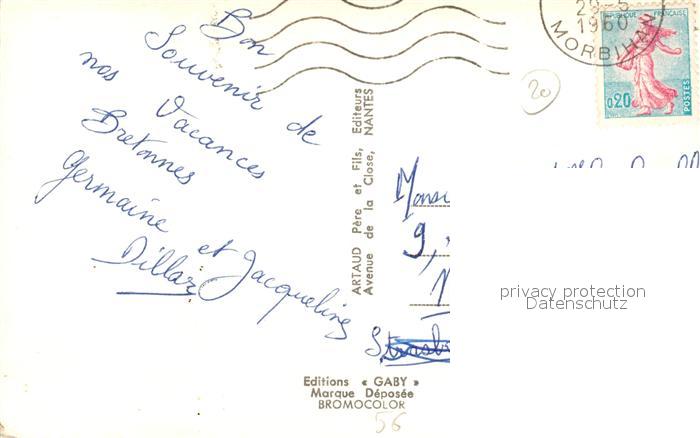 Bon
Souvenir de
nos Vacances
Bretonnes
Germaine et Jacqueline
Dillar
ARTAUD Père et Fils, Editeurs
Avenue de la Close, NANTES
Editions « GABY »
Marque Déposée
BROMOCOLOR
56
29-5
1960
MORBIHAN
REPUBLIQUE FRANÇAISE
0,20
POSTES
20
9,
privacy protection
Datenschutz